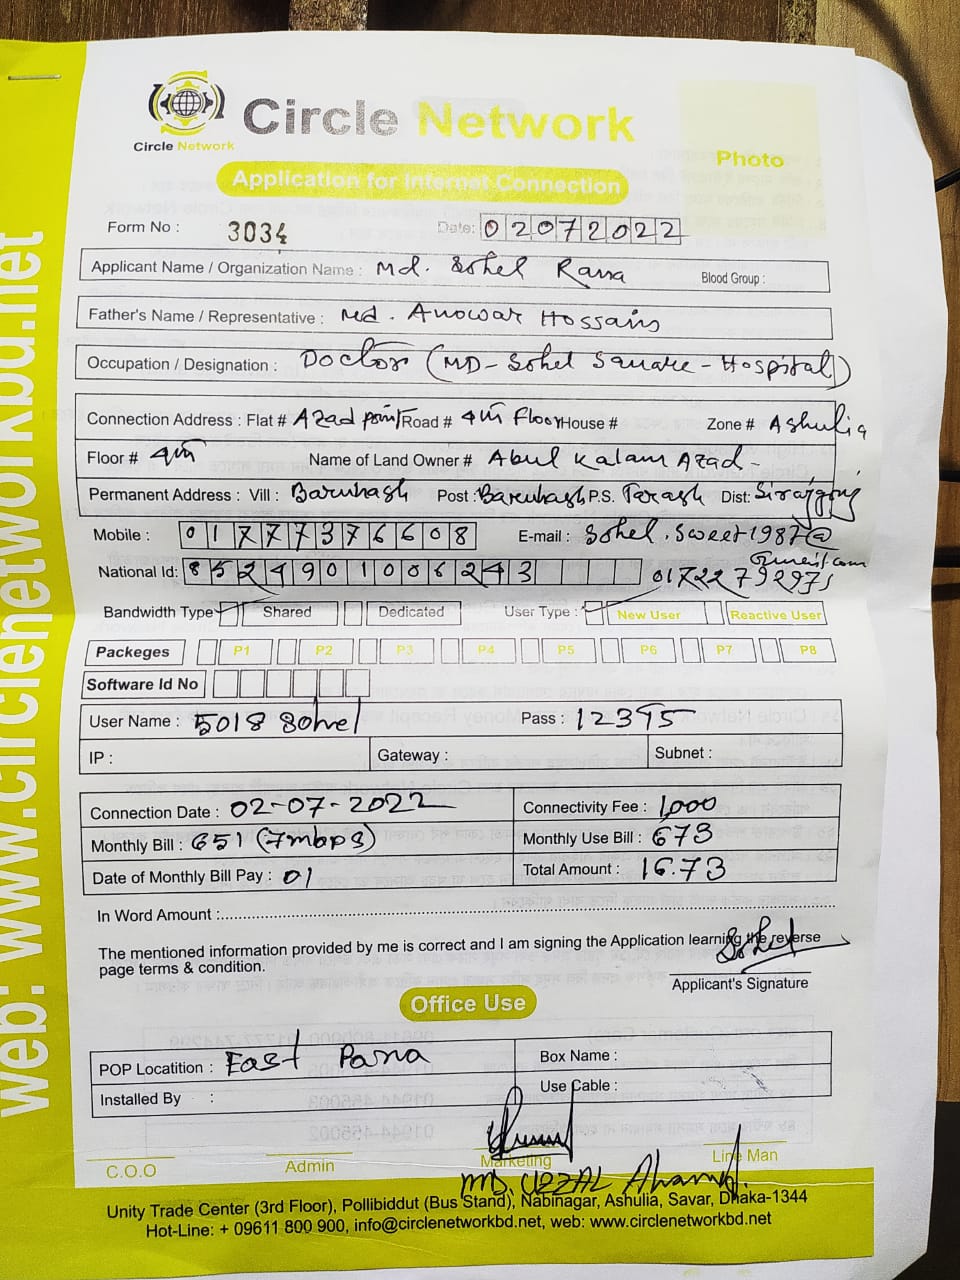 Circle Network
Circle Network
Photo
Application for Internet Connection
Form No : 3034 Date: 02072022
Applicant Name / Organization Name : Md. Sohel Rana Blood Group :
Father's Name / Representative : Md. Anowar Hossain
Occupation / Designation : Doctor (MD-Sohel Square-Hospital)
Connection Address : Flat # Azad point Road # 4th Floor House # Zone # Ashulia
Floor # 4th Name of Land Owner # Abul Kalam Azad
Permanent Address : Vill : Baruhash Post : Baruhash P.S. Tarash Dist: Sirajgong
Mobile : 01777376608 E-mail : Sohel.Sweet1987@
gmail.com
National Id: 8524901006243 01722792971
Bandwidth Type Shared Dedicated User Type : New User Reactive User
Packeges P1 P2 P3 P4 P5 P6 P7 P8
Software Id No
User Name : 5018 Sohel Pass : 12345
IP : Gateway : Subnet :
Connection Date : 02-07-2022 Connectivity Fee : 1,000
Monthly Bill : 651 (7mbps) Monthly Use Bill : 673
Date of Monthly Bill Pay : 01 Total Amount : 1673
In Word Amount :
The mentioned information provided by me is correct and I am signing the Application learning the reverse
page terms & condition.
Sohel
Applicant's Signature
Office Use
POP Locatition : East Para Box Name :
Installed By : Use Cable :
C.O.O Admin Marketing Line Man
MD. Ahamed.
Unity Trade Center (3rd Floor), Pollibiddut (Bus Stand), Nabinagar, Ashulia, Savar, Dhaka-1344
Hot-Line: + 09611 800 900, info@circlenetworkbd.net, web: www.circlenetworkbd.net
web: www.circlenetworkbd.net